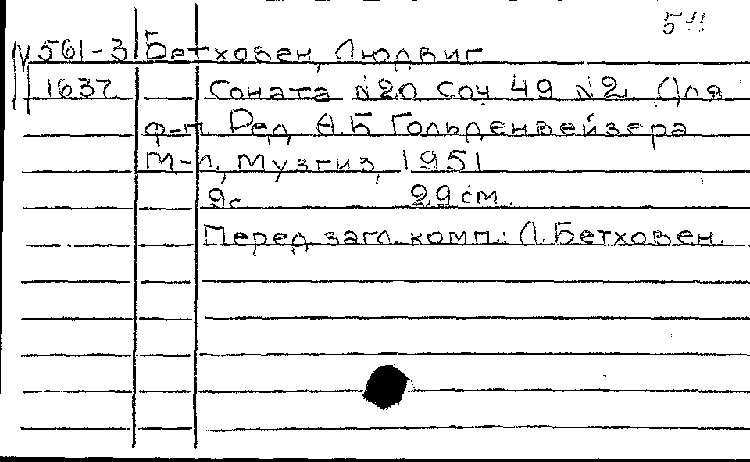 561-3 Бетховен, Людвиг
1637 Соната №20 Соч 49 №2. Для
ф-п Ред А.Б Гольденвейзера
М-Л, Музгиз, 1951
9с 29 см.
Перед загл. комп.: Л. Бетховен.